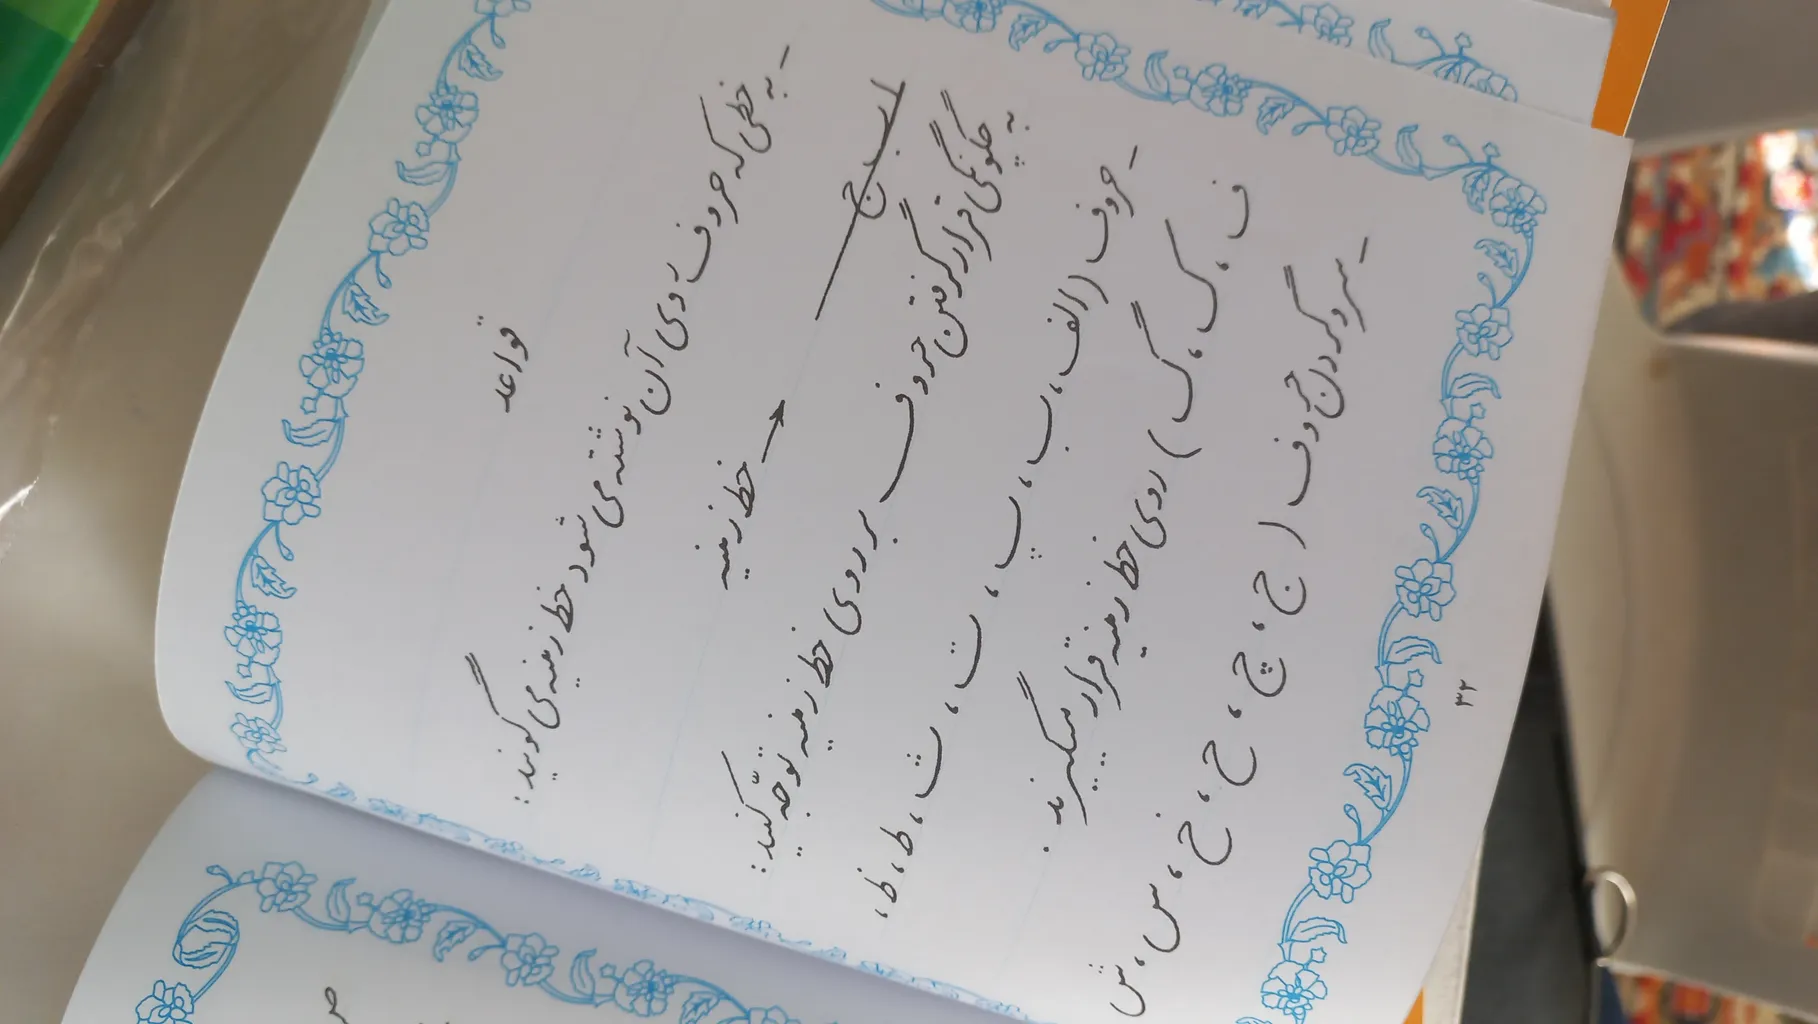 قواعد
- به خطی که حروف روی آن نوشته می شود خط زمینه می گویند:
ا ب ج ← خط زمینه
به چگونگی قرار گرفتن حروف بر روی خط زمینه توجّه کنید:
- حروف (الف، ب، پ، ت، ث، ط، ظ،
ف، ک، گ) روی خط زمینه قرار میگیرند.
- سر و گردن حروف (ج، چ، ح، خ، س، ش
۳۲